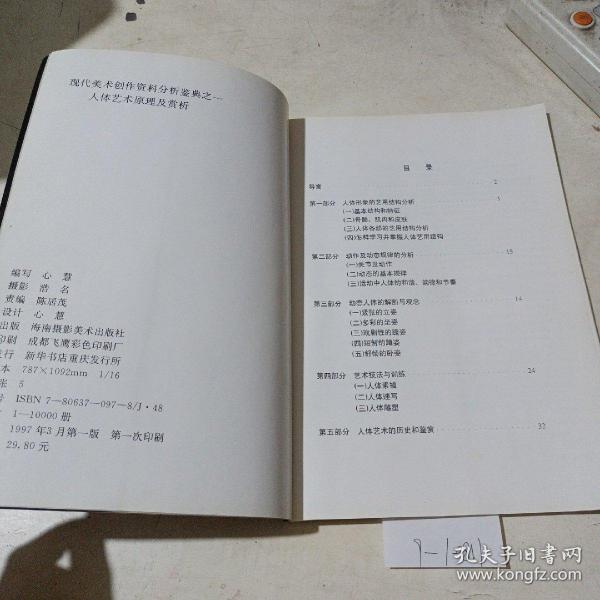 现代美术创作资料分析鉴典之一
人体艺术原理及赏析
编写 心慧
摄影 浩名
责编 陈居茂
设计 心慧
出版 海南摄影美术出版社
印刷 成都飞鹰彩色印刷厂
发行 新华书店重庆发行所
本 787×1092mm 1/16
张 5
号 ISBN 7-80637-097-8/J·48
1-10000册
1997年3月第一版 第一次印刷
29.80元
目 录
导言 2
第一部分 人体形象的艺用结构分析 3
(一)基本结构和特征
(二)骨骼、肌肉和皮肤
(三)人体各部的艺用结构分析
(四)怎样学习并掌握人体艺用结构
第二部分 动作及动态规律的分析 13
(一)关节及动作
(二)动态的基本规律
(三)活动中人体的和谐、韵律和节奏
第三部分 动态人体的解剖与观念 14
(一)紧张的立姿
(二)多彩的坐姿
(三)戏剧性的跪姿
(四)短暂的蹲姿
(五)轻松的卧姿
第四部分 艺术技法与训练 24
(一)人体素描
(二)人体速写
(三)人体雕塑
第五部分 人体艺术的历史和鉴赏 32
9-1-
孔夫子旧书网
www.kongfz.com